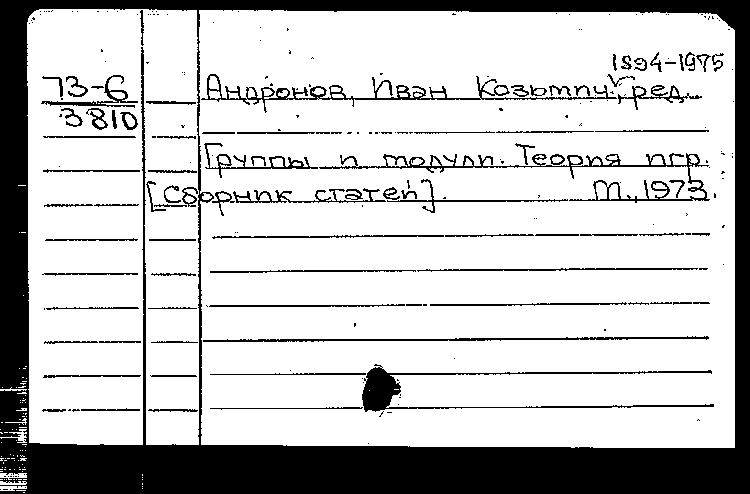 1894-1975
73-6 Андронов, Иван Козьмич, ред.
3810
Группы и модули. Теория игр.
[Сборник статей]. М., 1973.